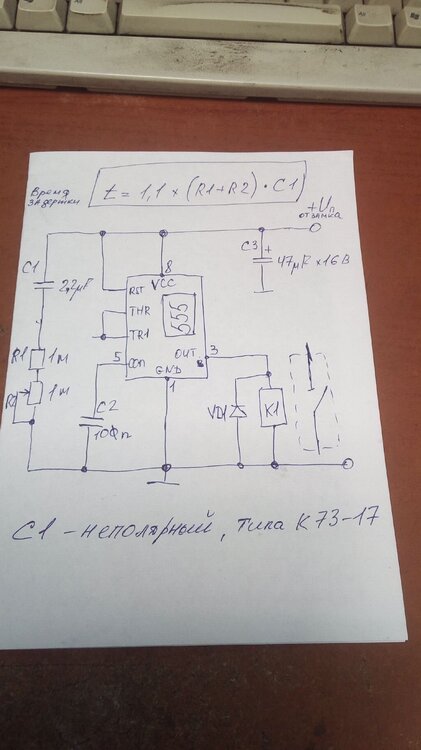 Время
задержки
t = 1,1 × (R1+R2) · C1)
+Uп
от замка
C3
+
47µF × 16 В
C1
2,2µF
8
VCC
RST
THR
TR1
555
R1
1м
R2
1м
5
CON
OUT
3
GND
1
C2
10Фn
VD1
K1
C1 - неполярный, типа К73-17